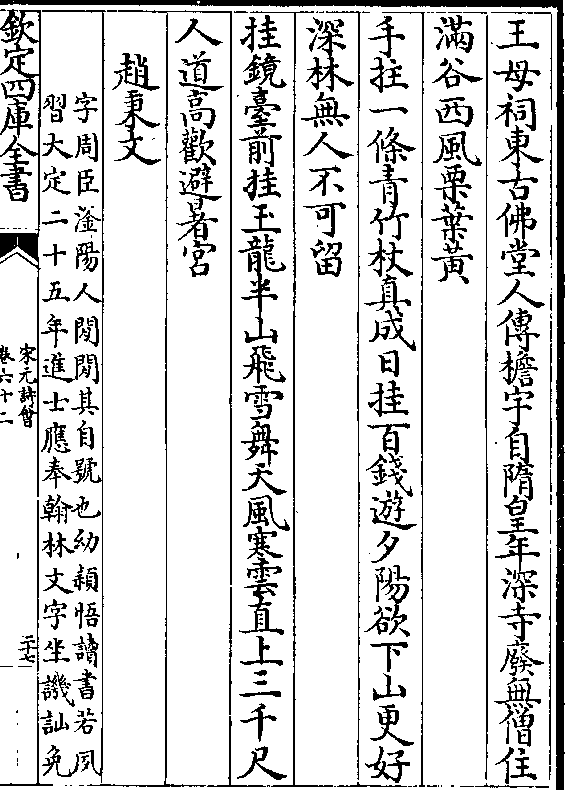 王母祠東古佛堂人傳檐字自隋皇年深寺廢無僧住
滿谷西風栗葉黃
手拄一條青竹杖真成日挂百錢遊夕陽欲下山更好
深林無人不可留
挂鏡臺前挂玉龍半山飛雪舞天風寒雲直上三千尺
人道高歡避暑宮
趙秉文
字周臣滏陽人閱閱其自號也幼穎悟讀書若夙
習大定二十五年進士應奉翰林文字坐譏訕免
欽定四庫全書
宋元詩會
卷六十二
二十七